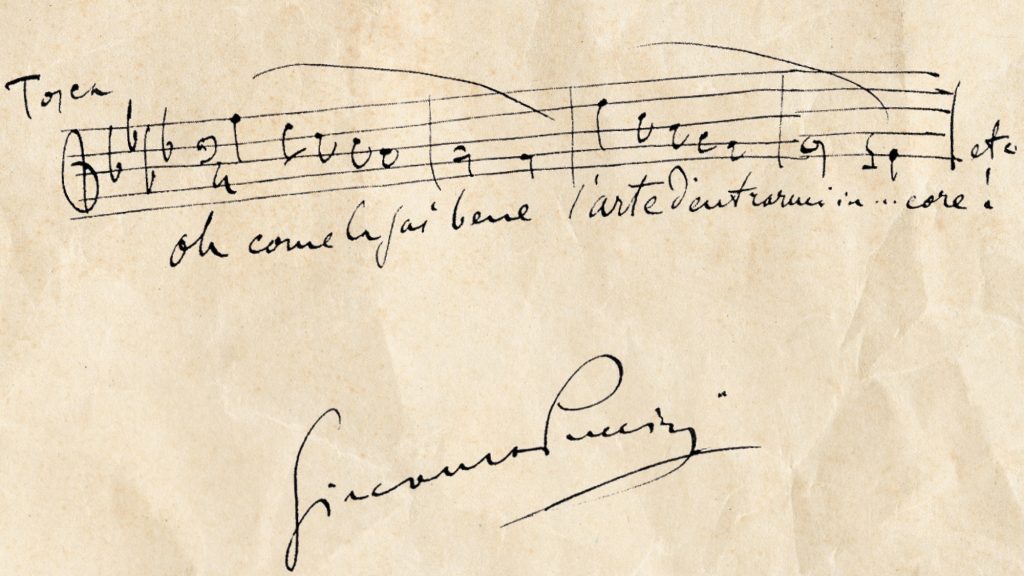 Tosca
etc
oh come la sai bene l'arte d'entrarmi in ... core!
Giacomo Puccini